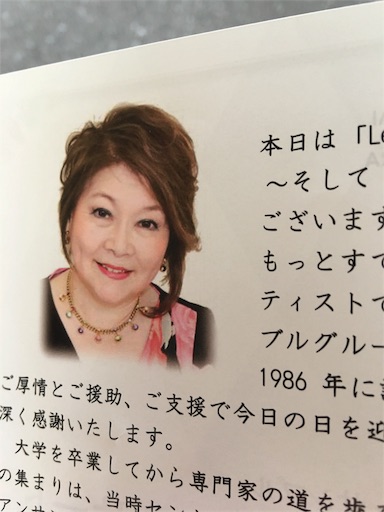 本日は「Le
～そして
ございます
もっとすて
ティストで
ブルグルー
1986 年に
ご厚情とご援助、ご支援で今日の日を迎
深く感謝いたします。
大学を卒業してから専門家の道を歩
の集まりは、当時セン
アンサ